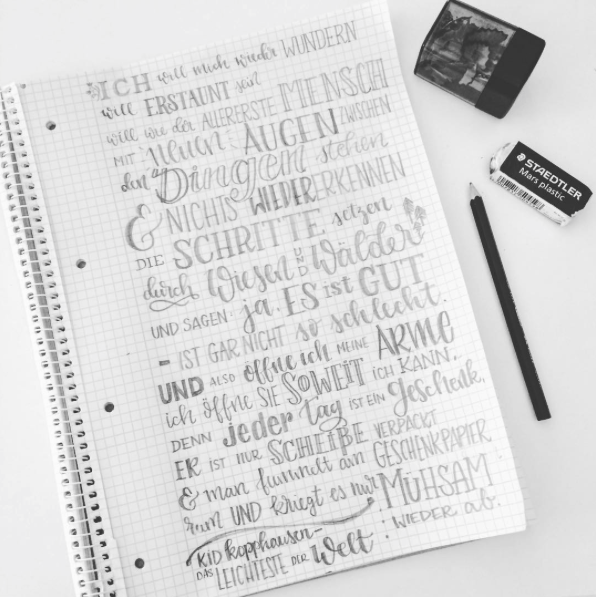 ICH will mich wieder WUNDERN
will ERSTAUNT sein
will wie der ALLERERSTE MENSCH
MIT neuen AUGEN ZWISCHEN
den Dingen stehen
& NICHTS WIEDERERKENNEN
DIE SCHRITTE setzen
durch Wiesen UND Wälder
UND SAGEN: ja. ES ist GUT
- IST GAR NICHT so schlecht.
UND ALSO öffne ich MEINE ARME
ich öffne SIE SOWEIT ich KANN,
DENN jeder Tag IST EIN Geschenk,
ER IST NUR SCHEIßE VERPACKT
& man fummelt am GESCHENKPAPIER
rum UND kriegt es nur MÜHSAM
WIEDER ab.
KID kopphausen -
DAS LEICHTESTE DER Welt
STAEDTLER
Mars plastic